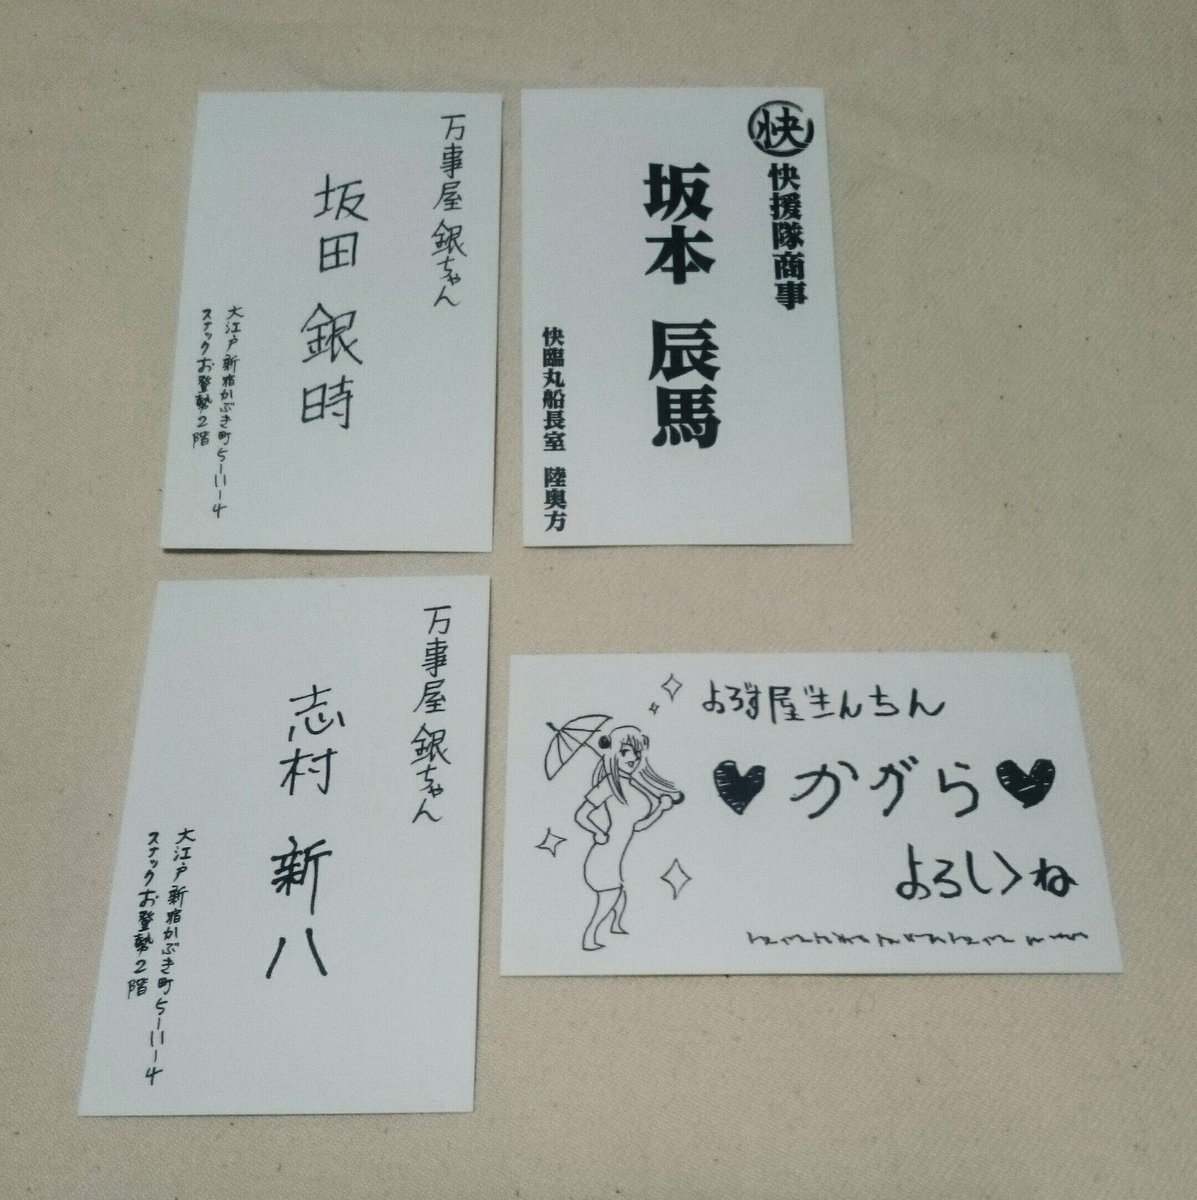 万事屋 銀ちゃん
坂田 銀時
大江戸新宿かぶき町5-11-4
スナックお登勢2階
快
快援隊商事
坂本 辰馬
快臨丸船長室 陸奥方
万事屋 銀ちゃん
志村 新八
大江戸新宿かぶき町5-11-4
スナックお登勢2階
よろず屋ぎんちん
かぐら
よろしくね